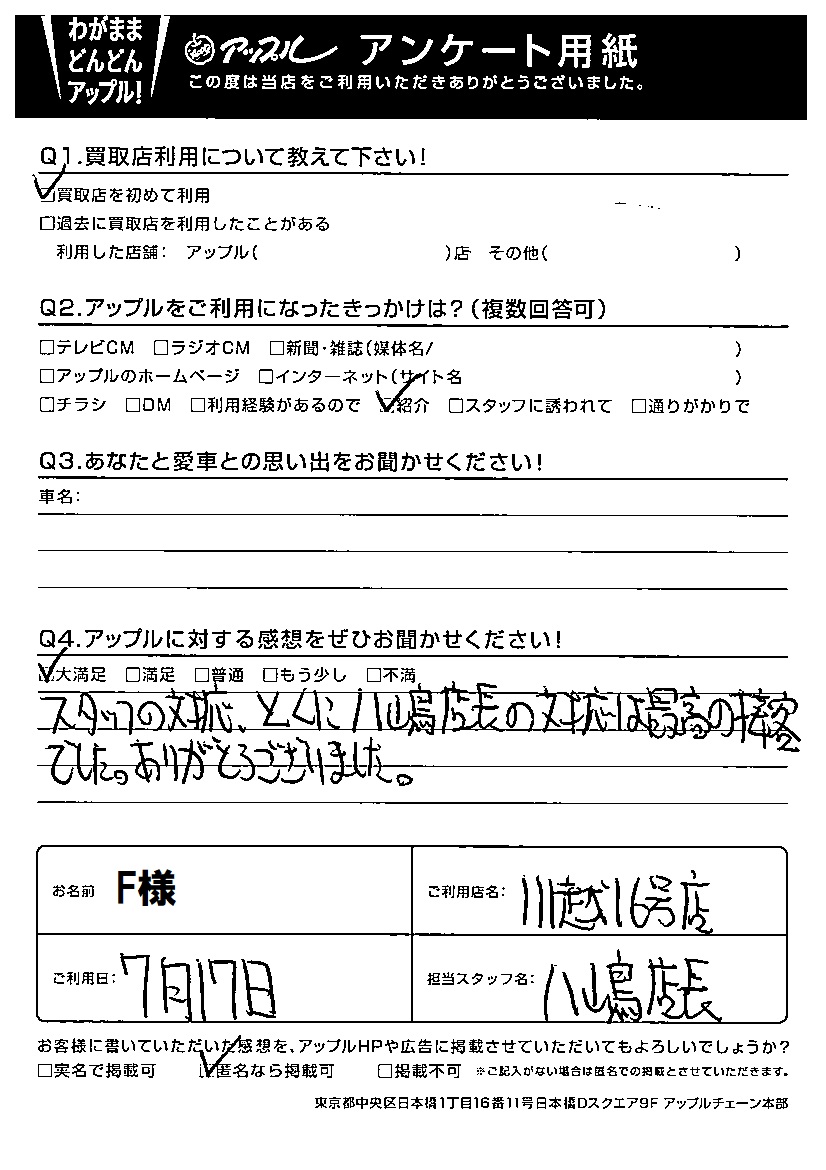 わがまま
どんどん
アップル!
アップル アンケート用紙
この度は当店をご利用いただきありがとうございました。
Q1.買取店利用について教えて下さい!
☑買取店を初めて利用
□過去に買取店を利用したことがある
利用した店舗: アップル( )店 その他( )
Q2.アップルをご利用になったきっかけは?(複数回答可)
□テレビCM □ラジオCM □新聞・雑誌(媒体名/ )
□アップルのホームページ □インターネット(サイト名 )
□チラシ □DM □利用経験があるので ☑紹介 □スタッフに誘われて □通りがかりで
Q3.あなたと愛車との思い出をお聞かせください!
車名:
Q4.アップルに対する感想をぜひお聞かせください!
☑大満足 □満足 □普通 □もう少し □不満
スタッフの対応、とくに八山鳥店長の対応は最高の接客
でした。ありがとうございました。
お名前 F様
ご利用店名: 川越16号店
ご利用日: 7月17日
担当スタッフ名: 八山鳥店長
お客様に書いていただいた感想を、アップルHPや広告に掲載させていただいてもよろしいでしょうか?
□実名で掲載可 ☑匿名なら掲載可 □掲載不可 ※ご記入がない場合は匿名での掲載とさせていただきます。
東京都中央区日本橋1丁目16番11号日本橋Dスクエア9F アップルチェーン本部